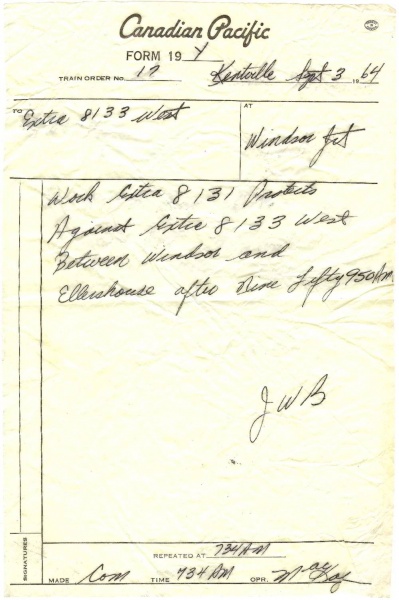 Canadian Pacific
FORM 19 Y
TRAIN ORDER No. 17 Kentville Sept 3 1964
TO Extra 8133 West AT Windsor Jct
Work Extra 8131 Protects
Against Extra 8133 West
Between Windsor and
Ellershouse after Nine Fifty 950 AM
JWB
SIGNATURES
REPEATED AT 734 AM
MADE Com TIME 734 AM OPR.